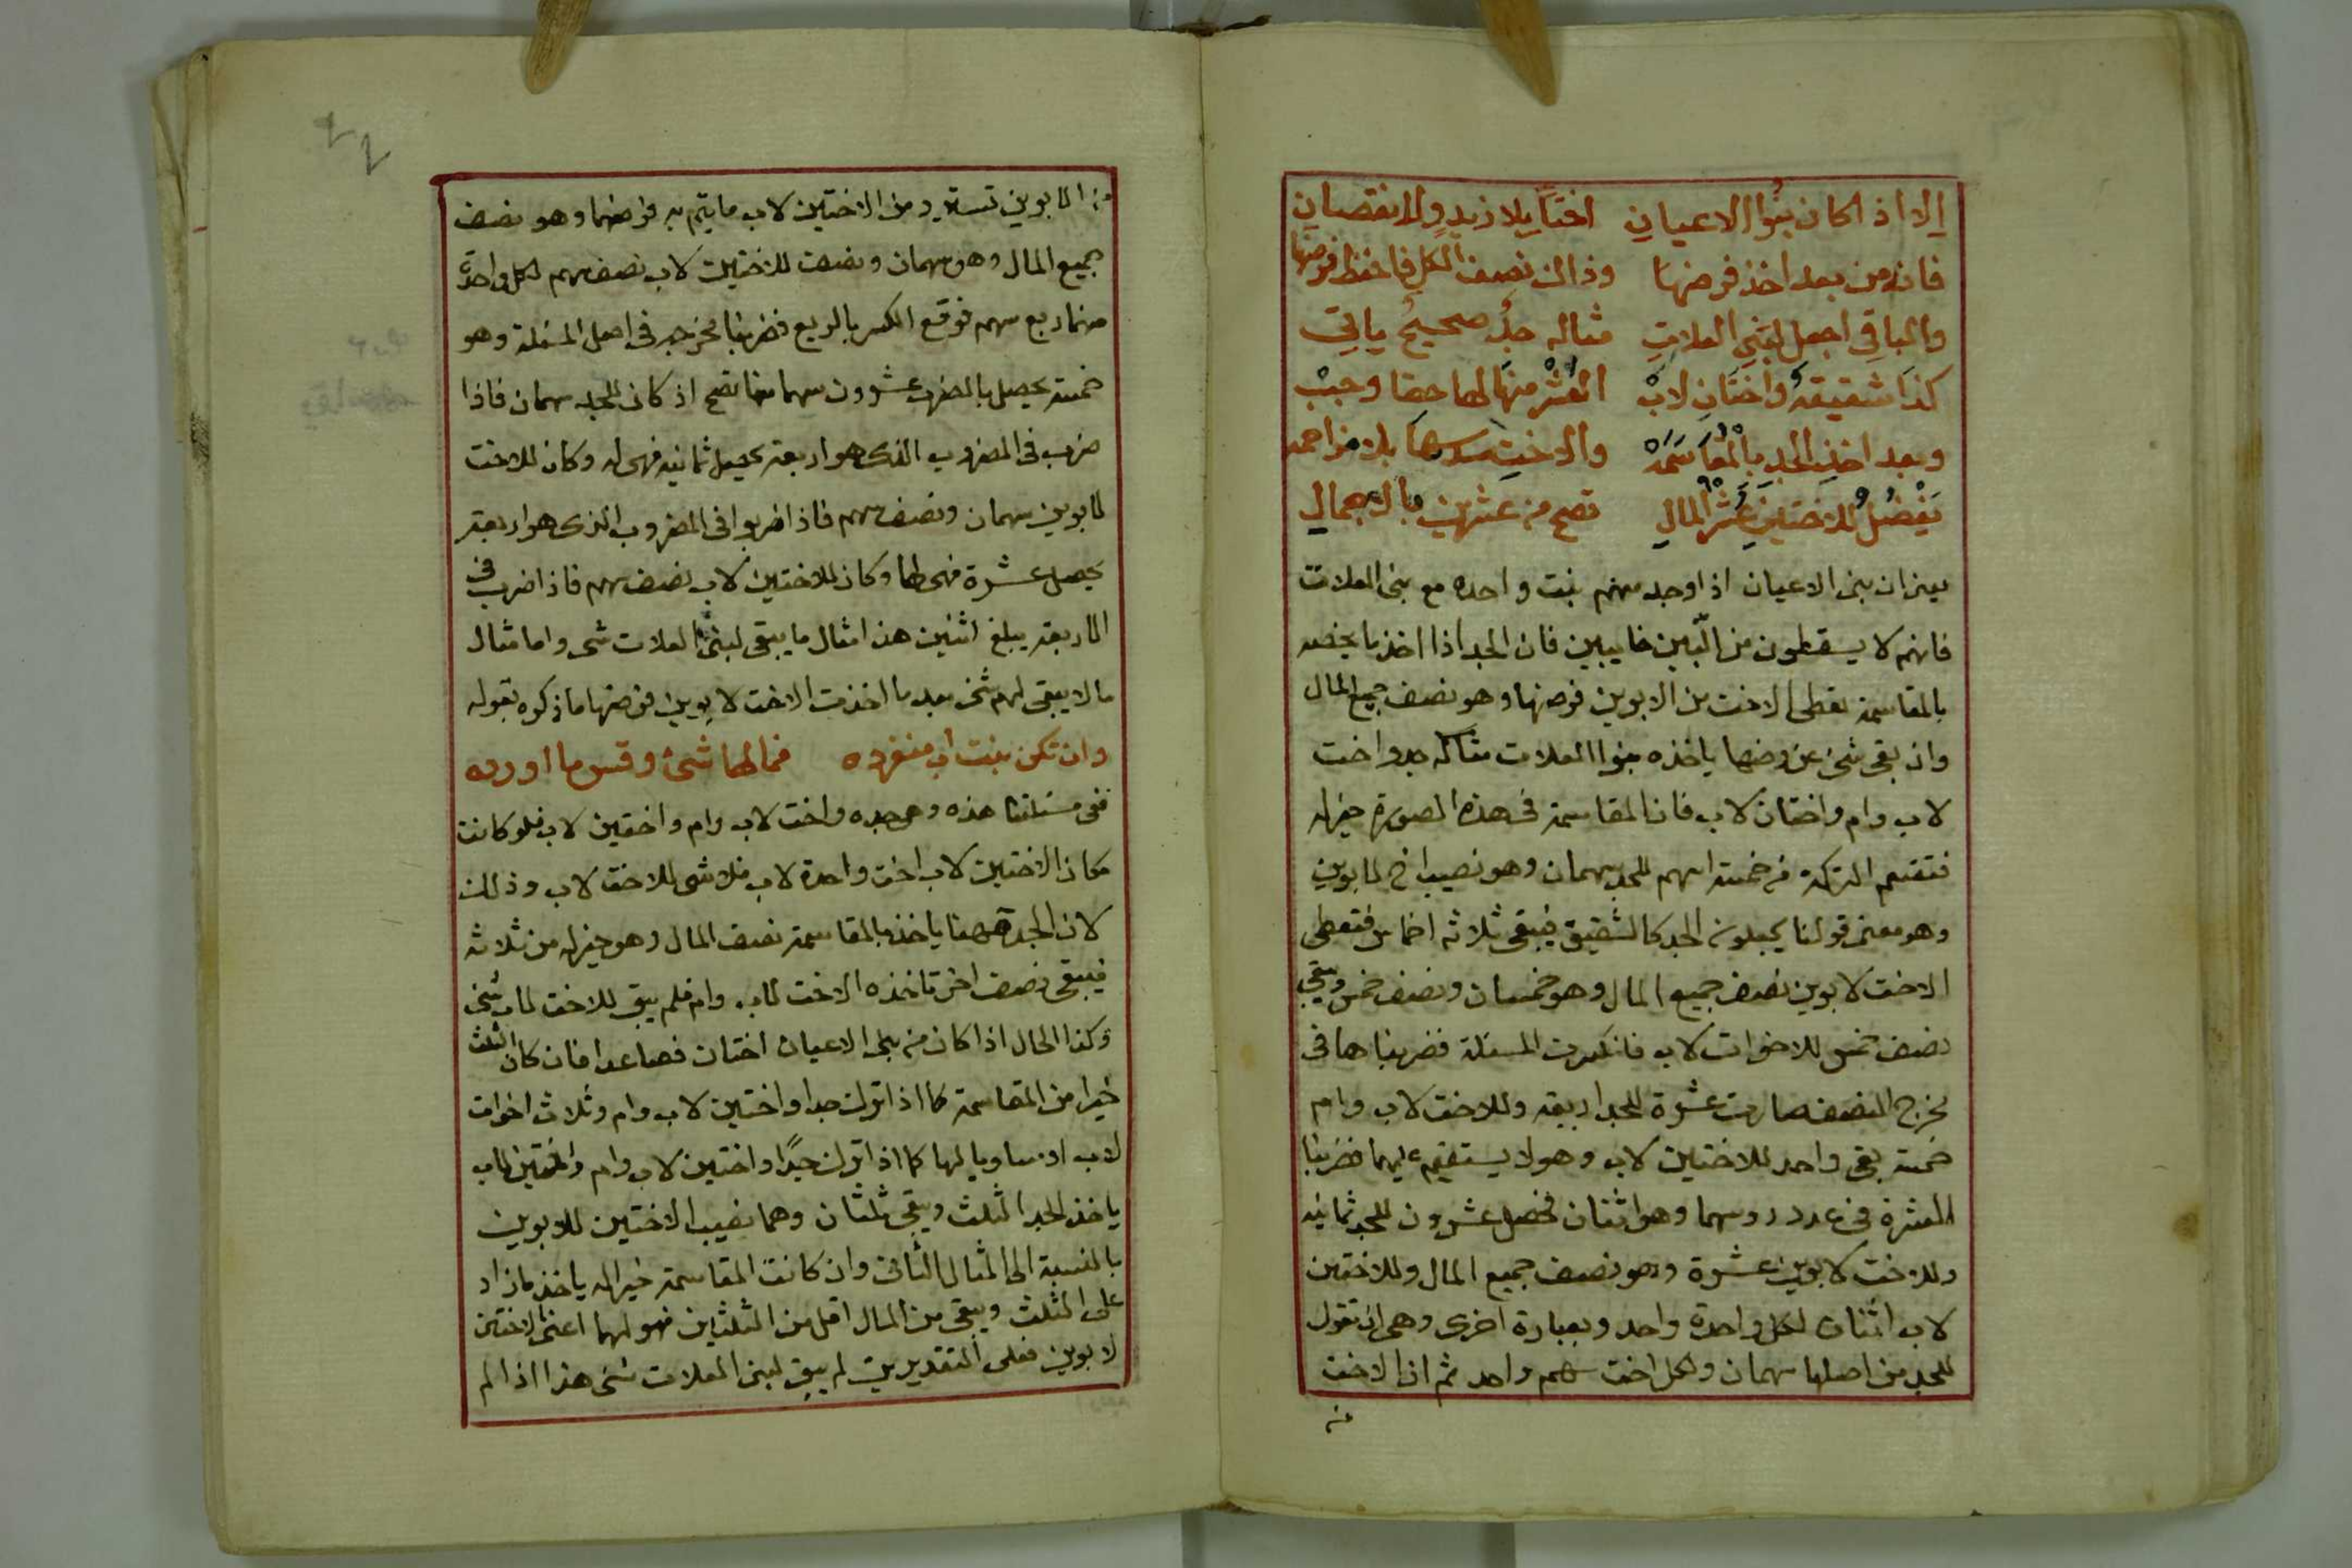 الا اذا كان بنوا الاعيان اختا بلا زيد ولا نقصان
فانه من بعد اخذ فرضها وذالك نصف الكل فاحفظ فرضها
والباقي اجعل لبني العلات مثاله جد صحيح ياتي
كذا شقيقة واختان لاب العشر منها لهما حقا وجب
وبعد اخذ الجد بالمقاسمه والاخت سهمها بلا مزاحمه
يفضل للاختين عشر المال تصح من عشرين بالاجمال
يعني ان بني الاعيان اذا وجد منهم بنت واحده مع بني العلات
فانهم لا يسقطون من البين خايبين فان الجد اذا اخذ ما يخصه
بالمقاسمة يعطى الاخت من الابوين فرضها وهو نصف جميع المال
واذ بقي شئ عن فرضها ياخذه بنوا العلات مثاله جد واخت
لاب وام واختان لاب فان المقاسمة في هذه الصورة خير له
فتقسم التركة من خمسة اسهم للجد سهمان وهو نصيب اخ لابوين
وهو معنى قولنا يجعلونه الجد كالشقيق فيبقى ثلاثه اخماس فتعطى
الاخت لابوين نصف جميع المال وهو خمسان ونصف خمس ويبقى
نصف خمس للاخوات لاب فانكسرت المسئلة فضربناها في
مخرج النصف صارت عشرة للجد اربعه وللاخت لاب وام
خمسة بقي واحد للاختين لاب وهو لا يستقيم عليهما فضربنا
العشرة في عدد روسهما وهو اثنان فحصل عشرون للجد ثمانيه
وللاخت لابوين عشرة وهو نصف جميع المال وللاختين
لاب اثنان لكل واحدة واحد وبعبارة اخرى وهى ان تقول
للجد من اصلها سهمان ولكل اخت سهم واحد ثم ان الاخت
من الابوين تسترد من الاختين لاب ما يتم به فرضها وهو نصف
جميع المال وهو سهمان ونصف للاختين لاب نصف سهم لكل واحدة
منهما ربع سهم فوقع الكسر بالربع فضربنا مخرجه في اصل المسئلة وهو
خمسة يحصل بالضرب عشرون سهما منها تصح اذ كان للجد سهمان فاذا
ضرب في المضروب الذى هو اربعة يحصل ثمانيه فهى له وكان للاخت
لابوين سهمان ونصف سهم فاذا ضربوا في المضروب الذى هو اربعة
يحصل عشرة فهى لها وكان للاختين لاب نصف سهم فاذا ضرب في
الاربعة يبلغ اثنين هذا مثال ما يبقى لبني العلات شى واما مثال
ما لا يبقى لهم شئ بعد ما اخذت الاخت لابوين فرضها ما ذكره بقوله
وان تكن بنت اب منفرده فما لها شئ وقس ما اورده
ففى مسئلتنا هذه وهى جده واخت لاب وام واختين لاب فلو كانت
مكان الاختين لاب اخت واحدة لاب فلا شى للاخت لاب وذلك
لان الجد ههنا ياخذ بالمقاسمة نصف المال وهو خير له من ثلاثه
فيبقى نصف اخر تاخذه الاخت لاب وام فلم يبق للاخت لاب شئ
وكذا الحال اذا كان من بنى الاعيان اختان فصاعدا فان كان الثلث
خيرا من المقاسمة كما اذا ترك جدا واختين لاب وام وثلاث اخوات
لاب او مساويا لها كما اذا ترك جدًا واختين لاب وام واختين لاب
ياخذ الجد الثلث ويبقى ثلثان وهما نصيب الاختين للابوين
بالنسبة الى المثال الثانى وان كانت المقاسمة خيرا له ياخذ ما زاد
على الثلث ويبقى من المال اقل من الثلثين فهو لهما اعنى لاختين
لابوين فعلى التقديرين لم يبق لبنى العلات شئ هذا اذا لم